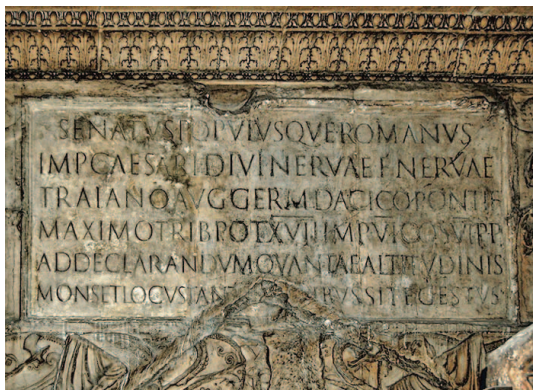 SENATVS POPVLVSQVE ROMANVS
IMP CAESARI DIVI NERVAE F NERVAE
TRAIANO AVG GERM DACICO PONTIF
MAXIMO TRIB POT XVII IMP VI COS VI PP
AD DECLARANDVM QVANTAE ALTITVDINIS
MONS ET LOCVS TAN IBVS SIT EGESTVS